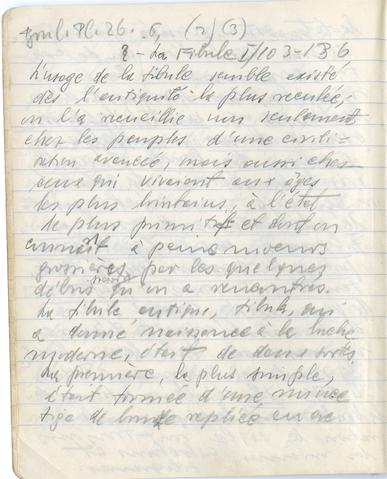 Pl. 26. 6, (2) (3)
8 - La Fibule I/103-136
L'usage de la fibule semble existé
dès l'antiquité la plus reculée,
on l'a recueillie non seulement
chez les peuples d'une civili-
sation avancée, mais aussi chez
ceux qui vivaient aux âges
les plus lointains, à l'état
le plus primitif et dont on
connaît à peine moeurs
grossières, par les quelques
débris qu'on a rencontrés.
La fibule antique, fibula, qui
a donné naissance à la boucle
moderne, était de deux sortes,
La première, la plus simple,
était formée d'une mince
tige de bronze repliée en arc